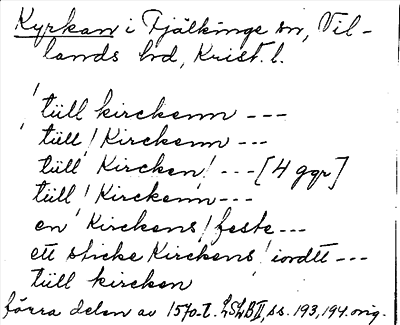 Kyrkan i Fjälkinge sn, Vil-
lands hd, Krist. l.
' tüll kirckenn ---
' tüll ' Kirckenn ---
tüll Kircken ' --- [4 ggr]
tüll ' Kirckenn ---
en ' Kirckens ' feste ---
ett sticke Kirckens ' iordtt ---
tüll kircken
förra delen av 1570-t. LSLBII, ss. 193, 194. orig.